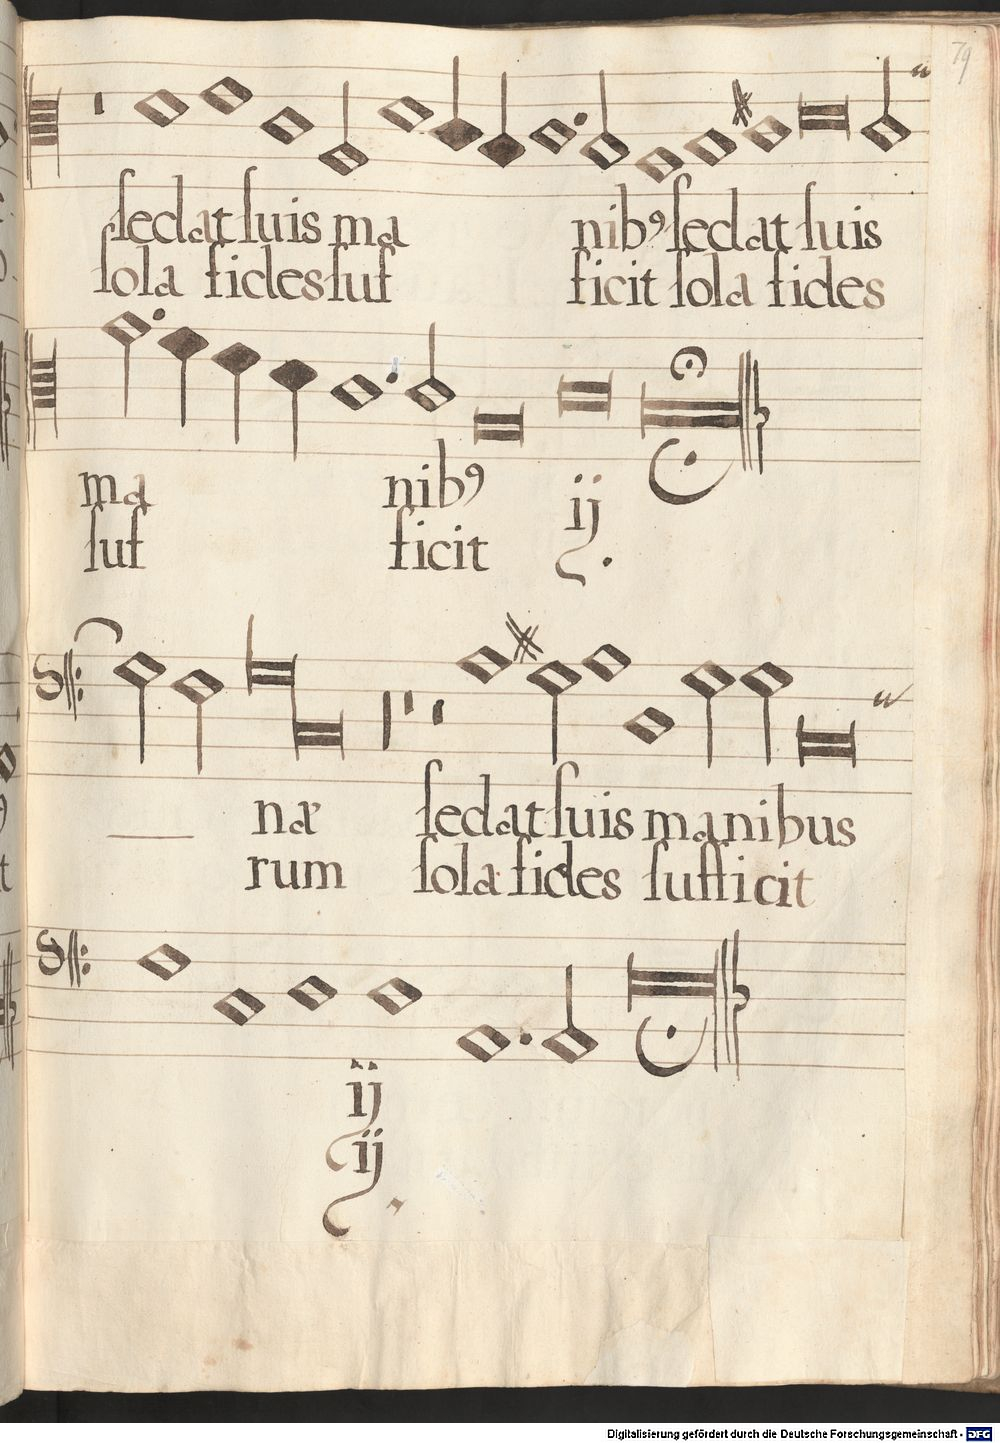 79
sedat suis ma nibꝰ sedat suis
sola fides suf ficit sola fides
ma nibꝰ ij
suf ficit .
næ sedat suis manibus
rum sola fides sufficit
ij
ij
Digitalisierung gefördert durch die Deutsche Forschungsgemeinschaft - DFG